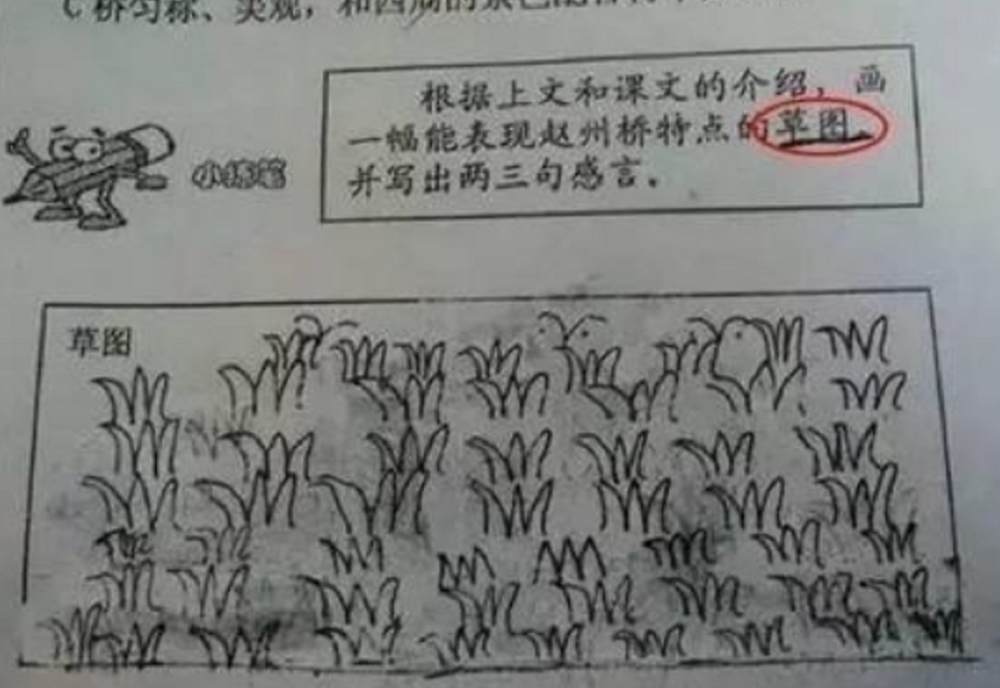 C桥匀称、美观，和四周的景色配合
小练笔
根据上文和课文的介绍，画
一幅能表现赵州桥特点的草图，
并写出两三句感言。
草图